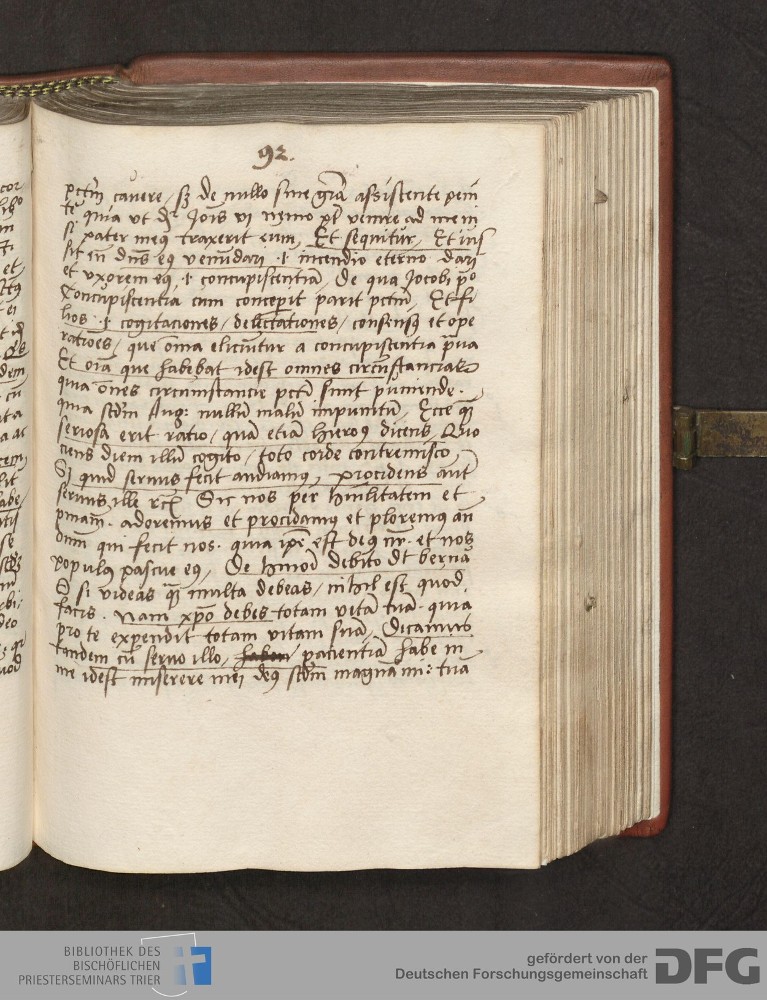 92.
pctm cavere / sz de nullo sine gra assistente
te quia ut dr Jois vi nemo pt venire ad me ni
si pater meus traxerit eum, Et sequitur, Et ius
sit eu dns eius venudari .i. incendio eterno dari
et uxorem eius, .i. concupiscentia, De qua Jacobi po
Concupiscentia cum conceperit parit pctm, Et fi
lios .i. cogitaciones / delectationes / consensus et ope
rationes / que omia eliciuntur a concupiscentia praua
Et oia que habebat idest omnes circustancias
quia omes circumstancie pcti sunt puniende.
quia scdm Aug: nullu malu impunitu, Ecce q
seriosa erit ratio / qua etia Hieros dicens, Quo
ciens diem illu cogito / toto corde contremisco,
Si quid servus fecit audiamus, procidens aut
servus ille rc Sic nos per humilitatem et
pniam. adoremus et procidamus et ploremus an
dnm qui fecit nos. quia ipe est deus nr. et nos
populus pascue eius, De hmoi debito dt berna
O si videas q multa debeas / nihil est quod
facis. Nam xpo debes totam vita tua. quia
pro te expendit totam vitam sua, Dicamus
tandem cu servo illo, pacientia habe in
me idest miserere mei deus scdm magna mi: tua
BIBLIOTHEK DES
BISCHÖFLICHEN
PRIESTERSEMINARS TRIER
gefördert von der
Deutschen Forschungsgemeinschaft
DFG